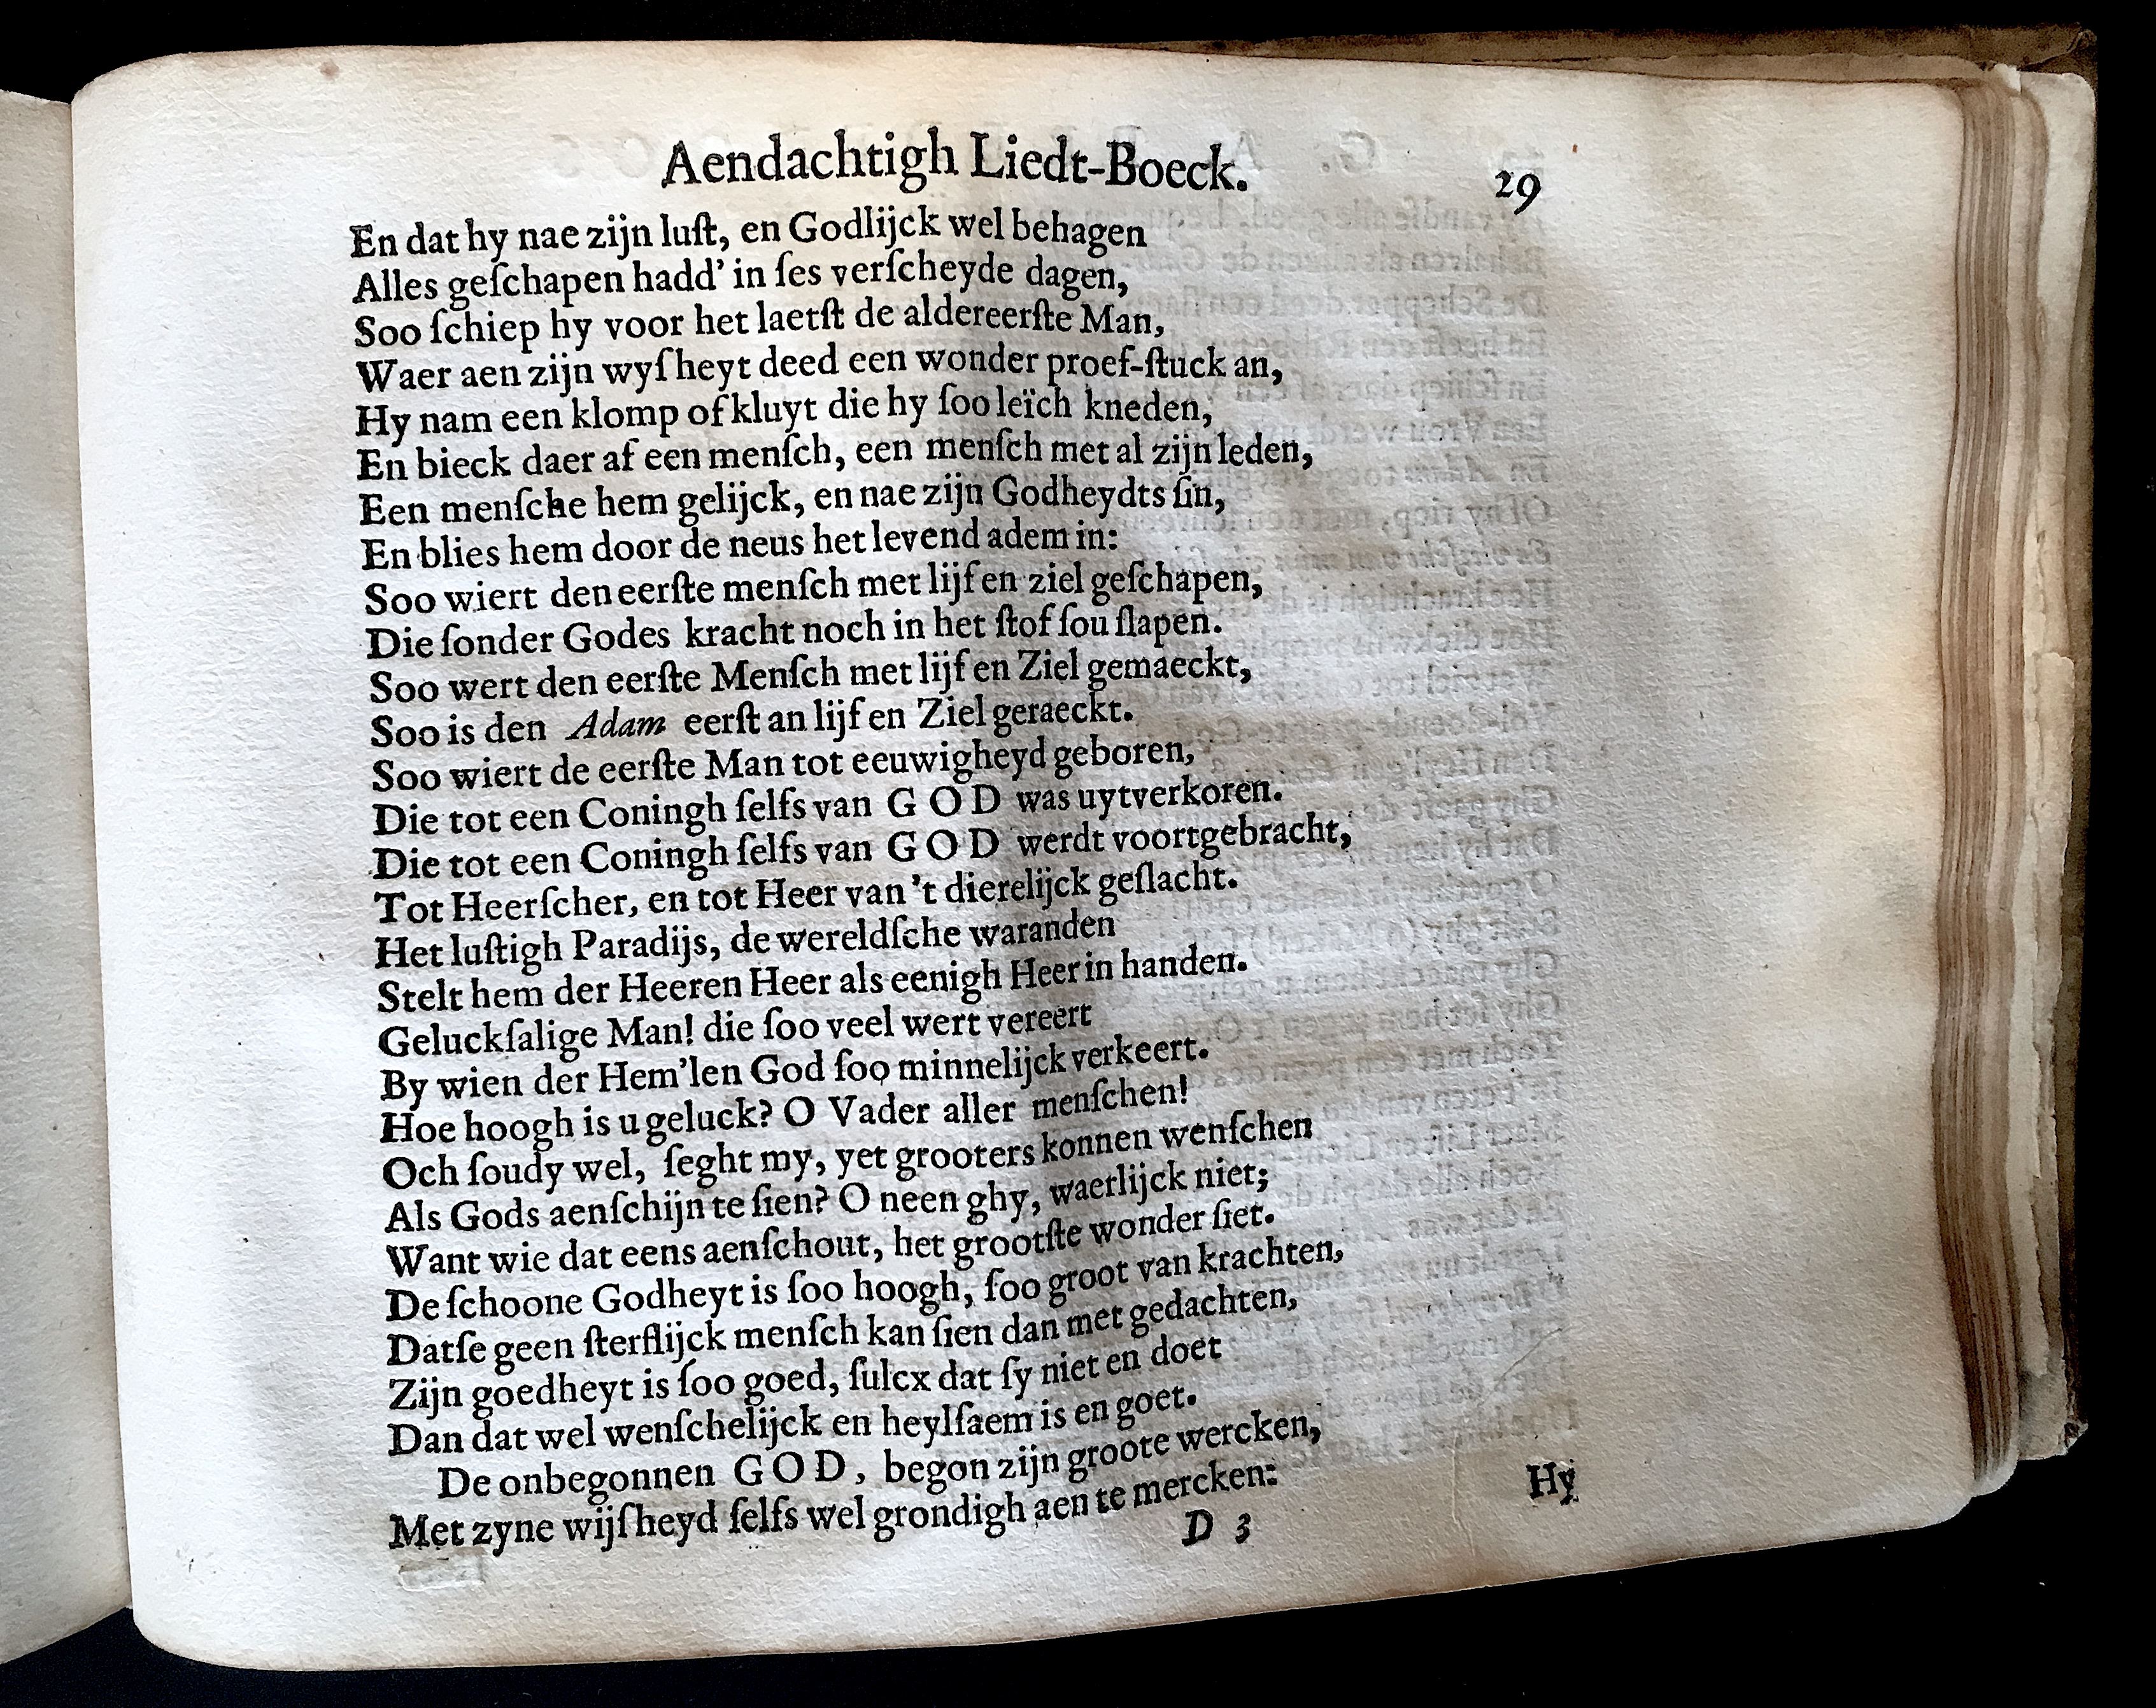 Aendachtigh Liedt-Boeck. 29
En dat hy nae zijn luſt, en Godlijck wel behagen
Alles geſchapen hadd' in ſes verſcheyde dagen,
Soo ſchiep hy voor het laetſt de aldereerſte Man,
Waer aen zijn wyſheyt deed een wonder proef-ſtuck an,
Hy nam een klomp of kluyt die hy ſoo leïch kneden,
En bieck daer af een menſch, een menſch met al zijn leden,
Een menſche hem gelijck, en nae zijn Godheydts ſin,
En blies hem door de neus het levend adem in:
Soo wiert den eerſte menſch met lijf en ziel geſchapen,
Die ſonder Godes kracht noch in het ſtof ſou ſlapen.
Soo wert den eerſte Menſch met lijf en Ziel gemaeckt,
Soo is den Adam eerſt an lijf en Ziel geraeckt.
Soo wiert de eerſte Man tot eeuwigheyd geboren,
Die tot een Coningh ſelfs van GOD was uytverkoren.
Die tot een Coningh ſelfs van GOD werdt voortgebracht,
Tot Heerſcher, en tot Heer van 't dierelijck geſlacht.
Het luſtigh Paradijs, de wereldſche waranden
Stelt hem der Heeren Heer als eenigh Heer in handen.
Geluckſalige Man! die ſoo veel wert vereert
By wien der Hem'len God ſoo minnelijck verkeert.
Hoe hoogh is u geluck? O Vader aller menſchen!
Och ſoudy wel, ſeght my, yet grooters konnen wenſchen
Als Gods aenſchijn te ſien? O neen ghy, waerlijck niet;
Want wie dat eens aenſchout, het grootſte wonder ſiet.
De ſchoone Godheyt is ſoo hoogh, ſoo groot van krachten,
Datſe geen ſterflijck menſch kan ſien dan met gedachten,
Zijn goedheyt is ſoo goed, ſulcx dat ſy niet en doet
Dan dat wel wenſchelijck en heylſaem is en goet.
De onbegonnen GOD, begon zijn groote wercken,
Met zyne wijſheyd ſelfs wel grondigh aen te mercken:
D 3 Hy